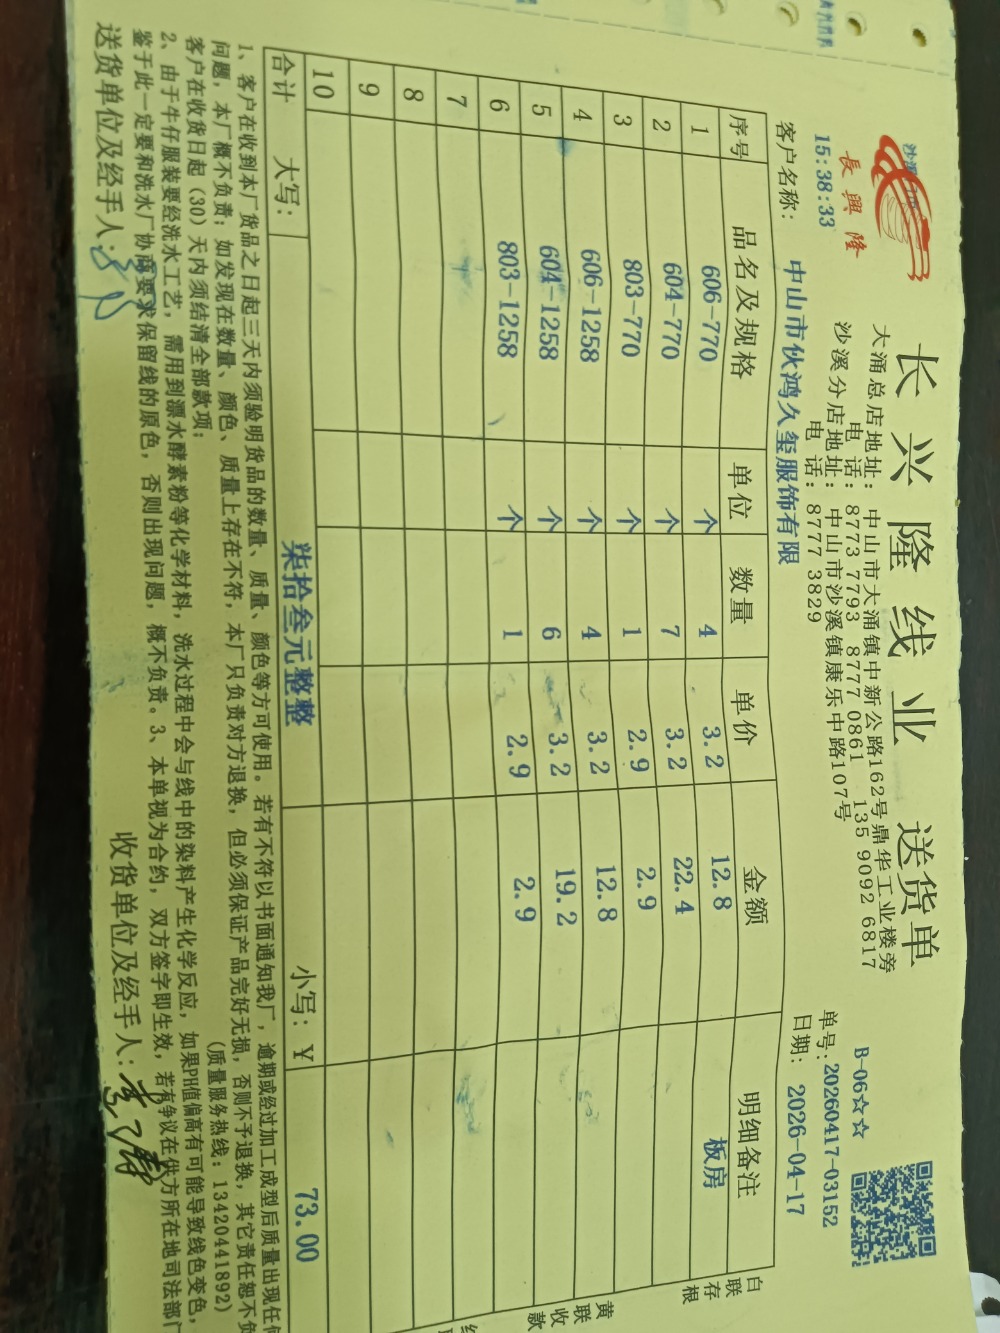 长兴隆线业 送货单
長興隆
大涌总店地址:中山市大涌镇中新公路162号鼎华工业楼旁
电 话:8773 7793 8777 0861 135 9092 6817
沙溪分店地址:中山市沙溪镇康乐中路107号
电 话:8777 3829
B-06☆☆
15:38:33
单号:20260417-03152
客户名称:中山市伙鸿久玺服饰有限
日期:2026-04-17
序号 品名及规格 单位 数量 单价 金额 明细备注
1 606-770 个 4 3.2 12.8 板房
2 604-770 个 7 3.2 22.4
3 803-770 个 1 2.9 2.9
4 606-1258 个 4 3.2 12.8
5 604-1258 个 6 3.2 19.2
6 803-1258 个 1 2.9 2.9
7
8
9
10
合计 大写: 柒拾叁元整整 小写:¥ 73.00
白联存根
黄联收款
1、客户在收到本厂货品之日起三天内须验明货品的数量、质量、颜色等方可使用。若有不符以书面通知我厂,逾期或经过加工成型后质量出现任何
问题,本厂概不负责;如发现在数量、颜色、质量上存在不符,本厂只负责对方退换,但必须保证产品完好无损,否则不予退换,其它责任恕不负
客户在收货日起(30)天内须结清全部款项; (质量服务热线:13420441892)
2、由于牛仔服装要经洗水工艺,需用到漂水酵素粉等化学材料,洗水过程中会与线中的染料产生化学反应,如果PH值偏高有可能导致线色变色,
鉴于此一定要和洗水厂协商要求保留线的原色,否则出现问题,概不负责。3、本单视为合约,双方签字即生效,若有争议在供方所在地司法部门
送货单位及经手人: 收货单位及经手人: